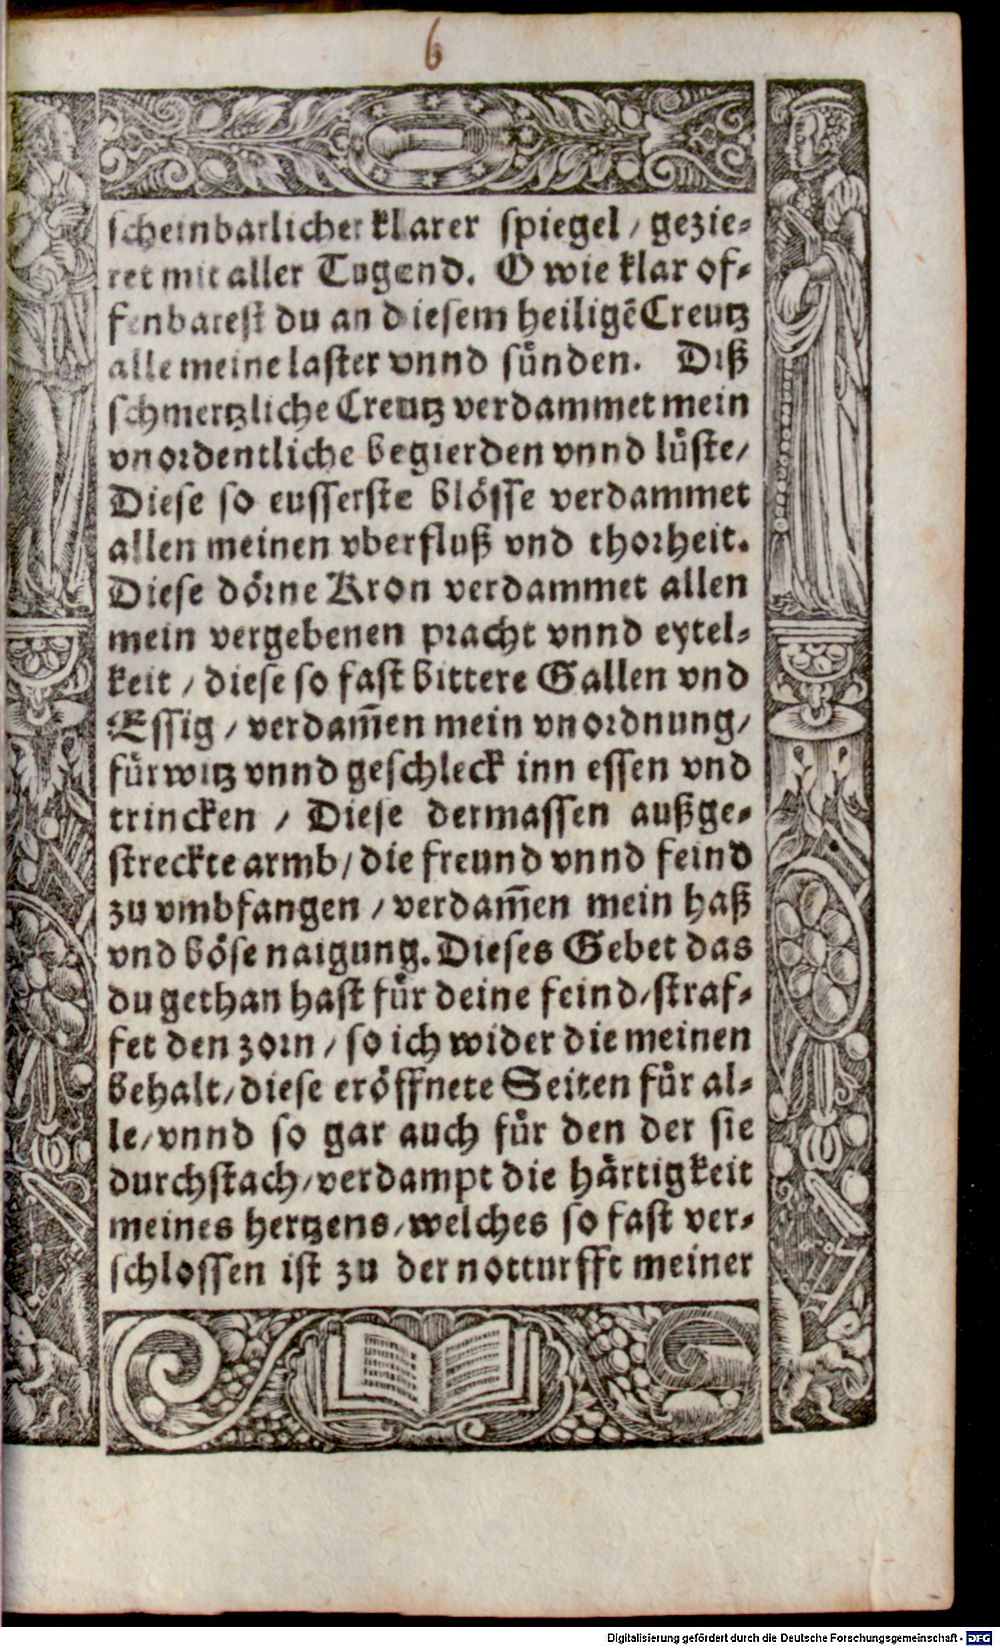 6
scheinbarlicher klarer spiegel / gezie-
ret mit aller Tugend. O wie klar of-
fenbarest du an diesem heiligẽ Creutz
alle meine laster vnnd sünden. Diß
schmertzliche Creutz verdammet mein
vnordentliche begierden vnnd lüste/
Diese so eusserste blösse verdammet
allen meinen vberfluß vnd thorheit.
Diese dörne Kron verdammet allen
mein vergebenen pracht vnnd eytel-
keit / diese so fast bittere Gallen vnd
Essig / verdam̃en mein vnordnung/
fürwitz vnnd geschleck inn essen vnd
trincken / Diese dermassen außge-
streckte armb/ die freund vnnd feind
zu vmbfangen / verdam̃en mein haß
vnd böse naigung. Dieses Gebet das
du gethan hast für deine feind/ straf-
fet den zorn / so ich wider die meinen
behalt/ diese eröffnete Seiten für al-
le/ vnnd so gar auch für den der sie
durchstach/ verdampt die härtigkeit
meines hertzens/ welches so fast ver-
schlossen ist zu der notturfft meiner
Digitalisierung gefördert durch die Deutsche Forschungsgemeinschaft - DFG